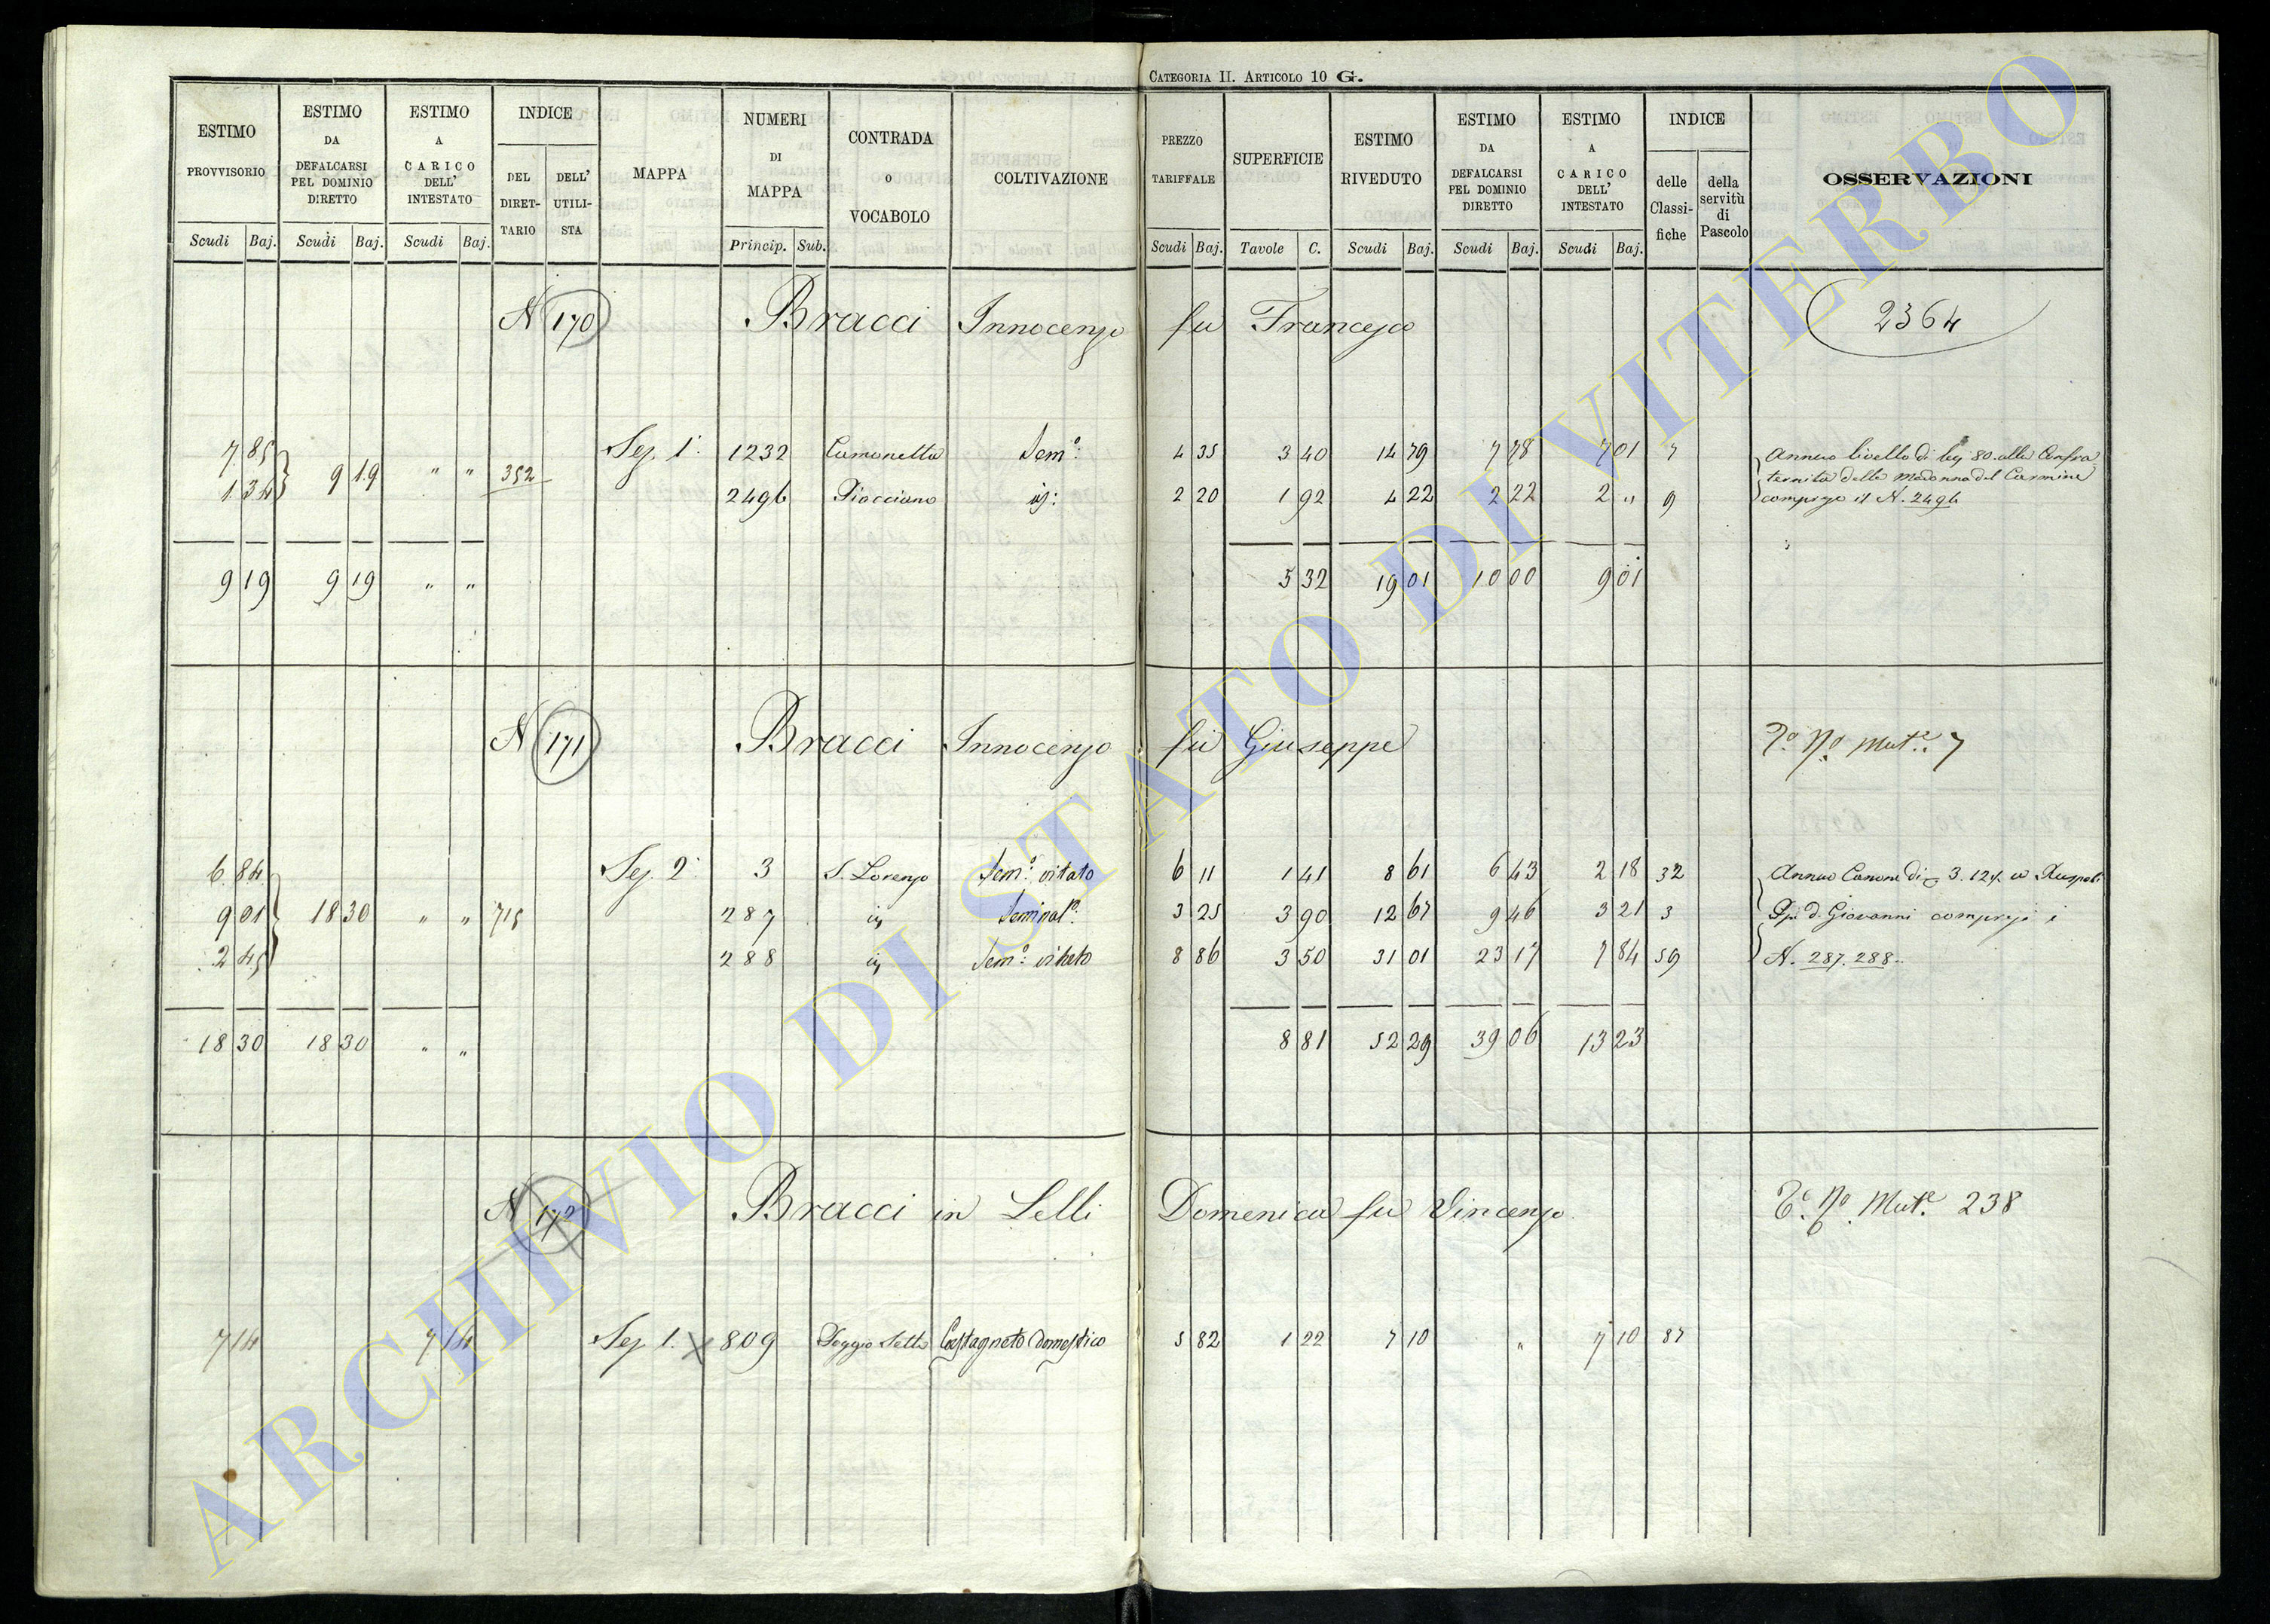 CATEGORIA II. ARTICOLO 10 G.
ESTIMO PROVVISORIO Scudi Baj.
ESTIMO DA DEFALCARSI PEL DOMINIO DIRETTO Scudi Baj.
ESTIMO A CARICO DELL' INTESTATO Scudi Baj.
INDICE DEL DIRET-TARIO DELL' UTILI-STA
MAPPA
NUMERI DI MAPPA Princip. Sub.
CONTRADA O VOCABOLO
COLTIVAZIONE
PREZZO TARIFFALE Scudi Baj.
SUPERFICIE Tavole C.
ESTIMO RIVEDUTO Scudi Baj.
ESTIMO DA DEFALCARSI PEL DOMINIO DIRETTO Scudi Baj.
ESTIMO A CARICO DELL' INTESTATO Scudi Baj.
INDICE delle Classi-fiche della servitù di Pascolo
OSSERVAZIONI
N 170 Bracci Innocenzo fu Francesco 2364
7 85 Sez. 1ª 1232 Camonetta Sem.º 4 35 3 40 14 79 7 78 7 01 7 Annuo livello di bj 80. alla Confra
9 19 " " 352
1 34 2496 Piacciano id: 2 20 1 92 4 22 2 22 2 " 9 ternita della Madonna del Carmine
compreso il N. 2496
9 19 9 19 " " 5 32 19 01 10 00 9 01
N 171 Bracci Innocenzo fu Giuseppe Mut.e 7
6 84 Sez. 2ª 3 S. Lorenzo Sem.º vitato 6 11 1 41 8 61 6 43 2 18 32 Annuo Canone di 3. 12½ a Ruspoli
9 01 18 30 " " 715 287 id Seminat.º 3 25 3 90 12 67 9 46 3 21 3 D. Giovanni compresi i
2 45 288 id Sem.º vitato 8 86 3 50 31 01 23 17 7 84 59 N. 287. 288.
18 30 18 30 " " 8 81 52 29 39 06 13 23
N 172 Bracci in Lelli Domenica fu Vincenzo Mut.e 238
7 14 7 14 Sez. 1. X 809 Poggio Setta Castagneto Domestico 5 82 1 22 7 10 " 7 10 87
ARCHIVIO DI STATO DI VITERBO